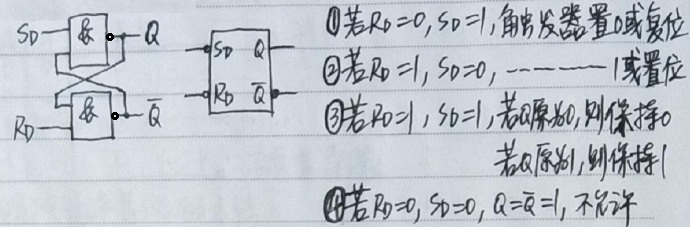 SD & Q
RD & Q̅
SD Q
RD Q̅
①若RD=0, SD=1, 触发器置0或复位
②若RD=1, SD=0, ------- 1或置位
③若RD=1, SD=1, 若Q原为0, 则保持0
若Q原为1, 则保持1
④若RD=0, SD=0, Q=Q̅=1, 不允许